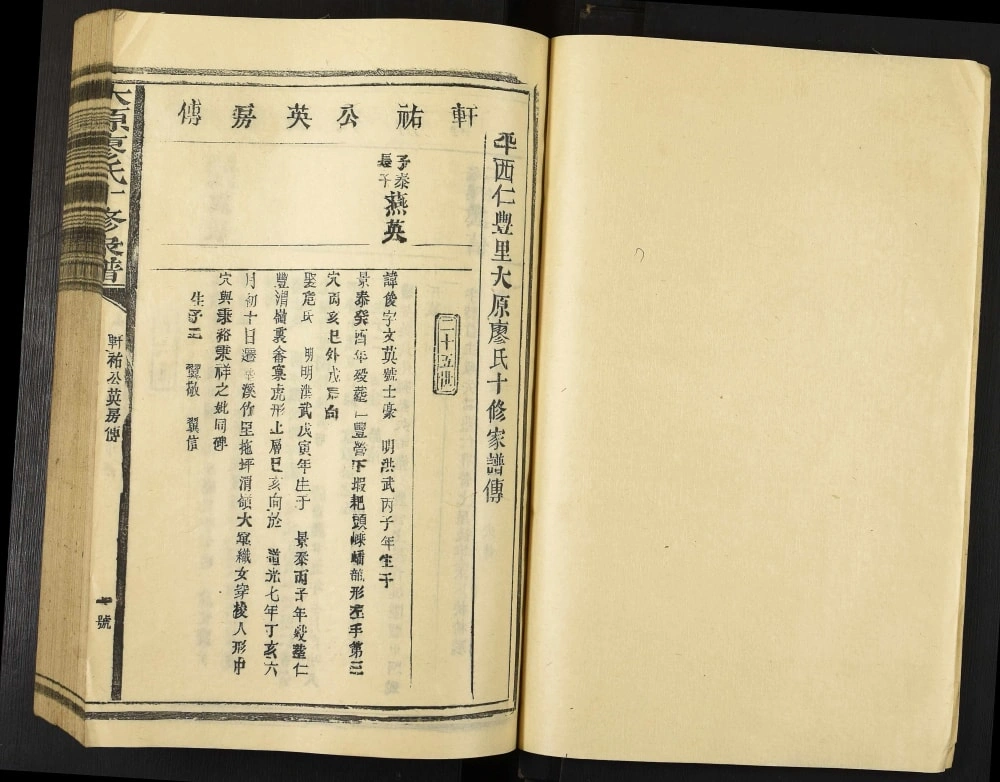 平西仁豐里大原廖氏十修家譜傳
軒祐公英房傳
二十五世
予泰
長子
燕英
諱俊字文英號士豪 明洪武丙子年生于
景泰癸酉年歿塟仁豐營下塅耙頭嵊皤龍形左手第三
穴丙亥巳外戌辰向
娶危氏 明洪武戊寅年生于 景泰丙子年歿塟仁
豐渭嶺裏畬窠虎形上層巳亥向於 道光七年丁亥六
月初十日遷溪竹里拖坪渭嶺大窠織女穿梭人形中
穴與秉裕秉祥之妣同碑
生子二 翼敬 翼信
大原廖氏十修家譜
軒祐公英房傳
號